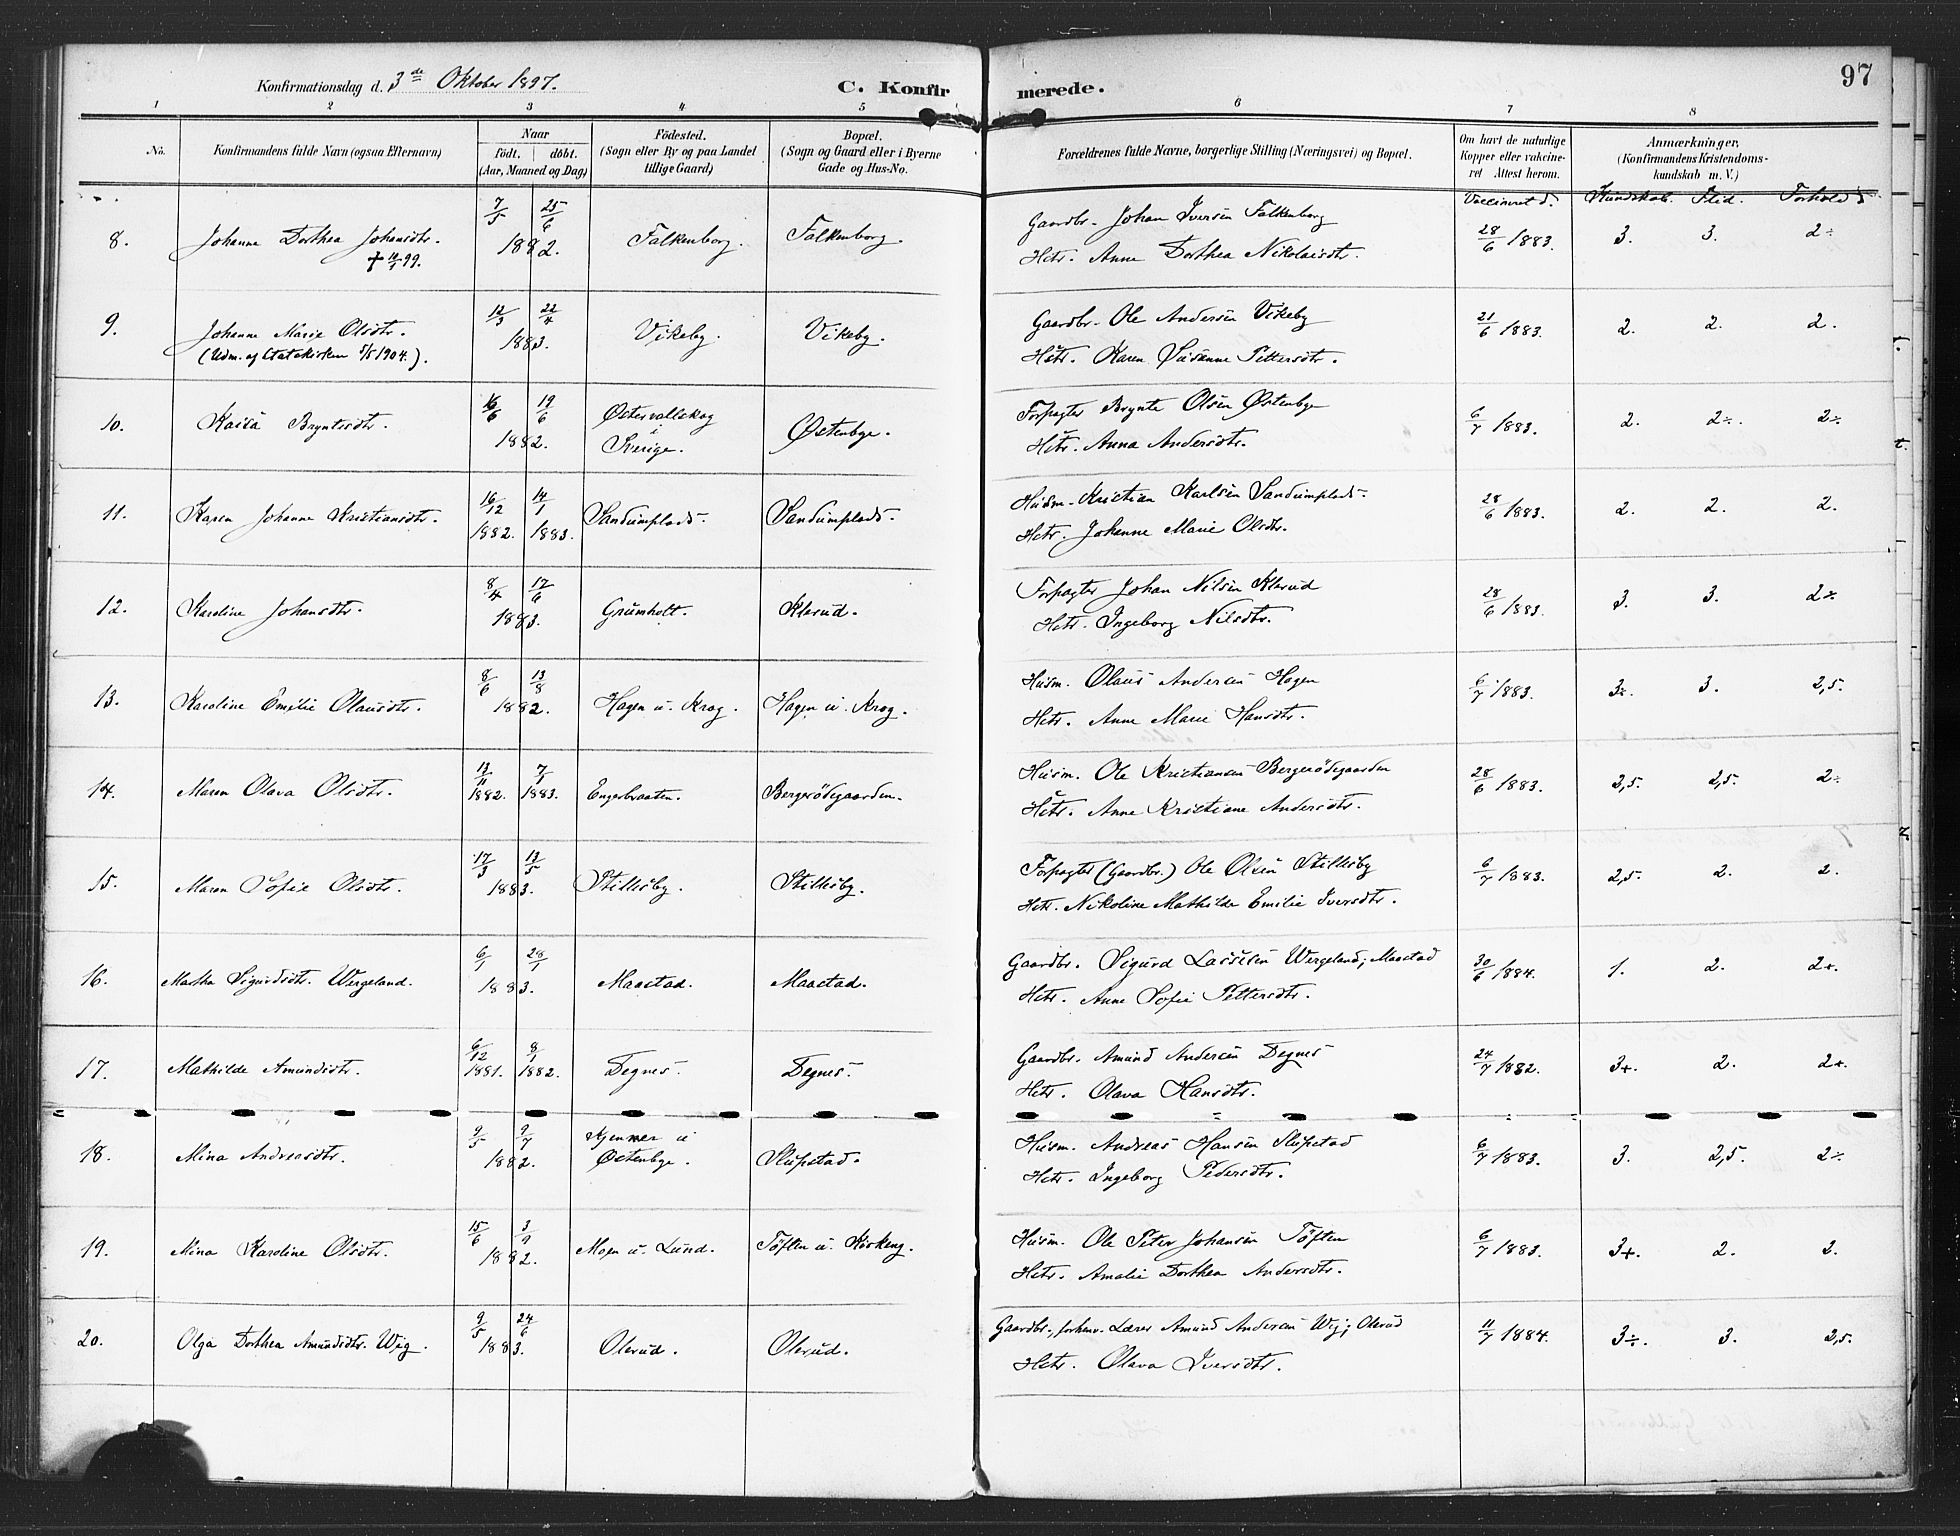 Konfirmationsdag d. 3de Oktober 1897.
C. Konfirmerede.
97
1 2 3 4 5 6 7 8
No.
Konfirmandens fulde Navn (ogsaa Efternavn)
Naar
födt. döbt.
(Aar, Maaned og Dag)
Födested.
(Sogn eller By og paa Landet
tillige Gaard)
Bopæl.
(Sogn og Gaard eller i Byerne
Gade og Hus-No.
Forældrenes fulde Navne, borgerlige Stilling (Næringsvei) og Bopæl.
Om havt de naturlige
Kopper eller vakcine-
ret Attest herom.
Anmærkninger,
(Konfirmandens Kristendoms-
kundskab m. V.)
Vaccineret d. Kundskab. Flid. Forhold
8. Johanne Dorthea Johansdtr. 7/5 25/6 1882. Falkenborg. Falkenborg. Gaardbr. Johan Iversen Falkenborg 28/6 1883. 3. 3. 2÷
99. Hstr. Anne Dorthea Nikolaisdtr.
9. Johanne Marie Olsdtr. 12/3 22/4 1883. Vikeby. Vikeby. Gaardbr. Ole Andersen Vikeby 21/6 1883. 2. 2. 2.
(Udm. af Statskirken 1/5 1904.). Hstr. Karen Susanne Pettersdtr.
10. Kaisa Bryntesdtr. 16/6 19/6 1882. Østervallskog i Sverige. Østenbye. Forpagter Brynte Olsen Østenbye 6/7 1883. 2. 2÷. 2÷
Hstr. Anna Andersdtr.
11. Karen Johanne Kristiansdtr. 16/12 1882. 14/1 1883. Sandumplads. Sandumplads. Husm. Kristian Karlsen Sandumplads. 28/6 1883. 2. 2. 2.
Hstr. Johanne Marie Olsdtr.
12. Karoline Johansdtr. 8/4 17/6 1883. Grumholt. Klerud. Forpagter Johan Nilsen Klerud 28/6 1883. 3. 3. 2÷
Hstr. Ingeborg Nilsdtr.
13. Karoline Emilie Olausdtr. 8/6 13/8 1882. Hagen u. Krog. Hagen u. Krog. Husm. Olaus Andersen Hagen 6/7 1883. 3÷. 3. 2,5.
Hstr. Anne Marie Hansdtr.
14. Maren Olava Olsdtr. 13/11 1882. 7/1 1883. Engerbraaten. Bergerödegaarden. Husm. Ole Kristiansen Bergerödegaarden 28/6 1883. 2,5. 2,5. 2÷
Hstr. Anne Kristiane Andersdtr.
15. Maren Sofie Olsdtr. 17/3 13/5 1883. Stillesby. Stillesby. Forpagter (Gaardbr.) Ole Olsen Stillesby 6/7 1883. 2,5. 2. 2.
Hstr. Nikoline Mathilde Emilie Iversdtr.
16. Martha Sigurdsdtr. Wergeland. 6/1 28/1 1883. Maastad. Maastad. Gaardbr. Sigurd Lassesen Wergeland; Maastad 30/6 1884. 1. 2. 2+.
Hstr. Anne Sofie Pettersdtr.
17. Mathilde Amundsdtr. 6/12 1881. 8/1 1882. Tegnes. Tegnes. Gaardbr. Amund Andersen Tegnes 24/7 1882. 3+. 2. 2+.
Hstr. Olava Hansdtr.
18. Mina Andreasdtr. 9/5 9/7 1882. Kjenner u Østenbye. Slupstad. Husm. Andreas Hansen Slupstad 6/7 1883. 3. 2,5. 2÷
Hstr. Ingeborg Pedersdtr.
19. Mina Karoline Olsdtr. 15/6 3/9 1882. Moen u. Lund. Töften u. Kirkeng. Husm. Ole Peter Johansen Töften 6/7 1883. 3+. 2. 2.
Hstr. Amalie Dorthea Andersdtr.
20. Olga Dorthea Amundsdtr. Wig. 9/5 24/6 1883. Olerud. Olerud. Gaardbr., forhenv. Lærer Amund Andersen Wig; Olerud 11/7 1884. 3÷. 3. 2,5.
Hstr. Olava Iversdtr.